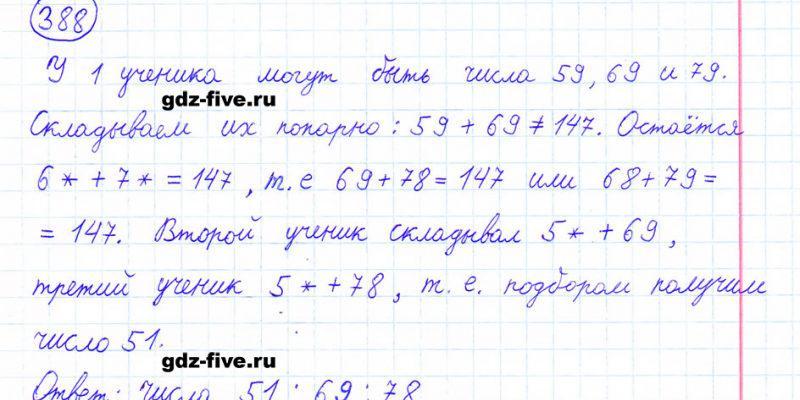 388
У 1 ученика могут быть числа 59, 69 и 79.
gdz-five.ru
Складываем их попарно: 59 + 69 ≠ 147. Остаётся
6* + 7* = 147, т.е 69 + 78 = 147 или 68 + 79 =
= 147. Второй ученик складывал 5* + 69,
третий ученик 5* + 78, т. е. подбором получим
число 51.
gdz-five.ru
Ответ: числа 51; 69; 78